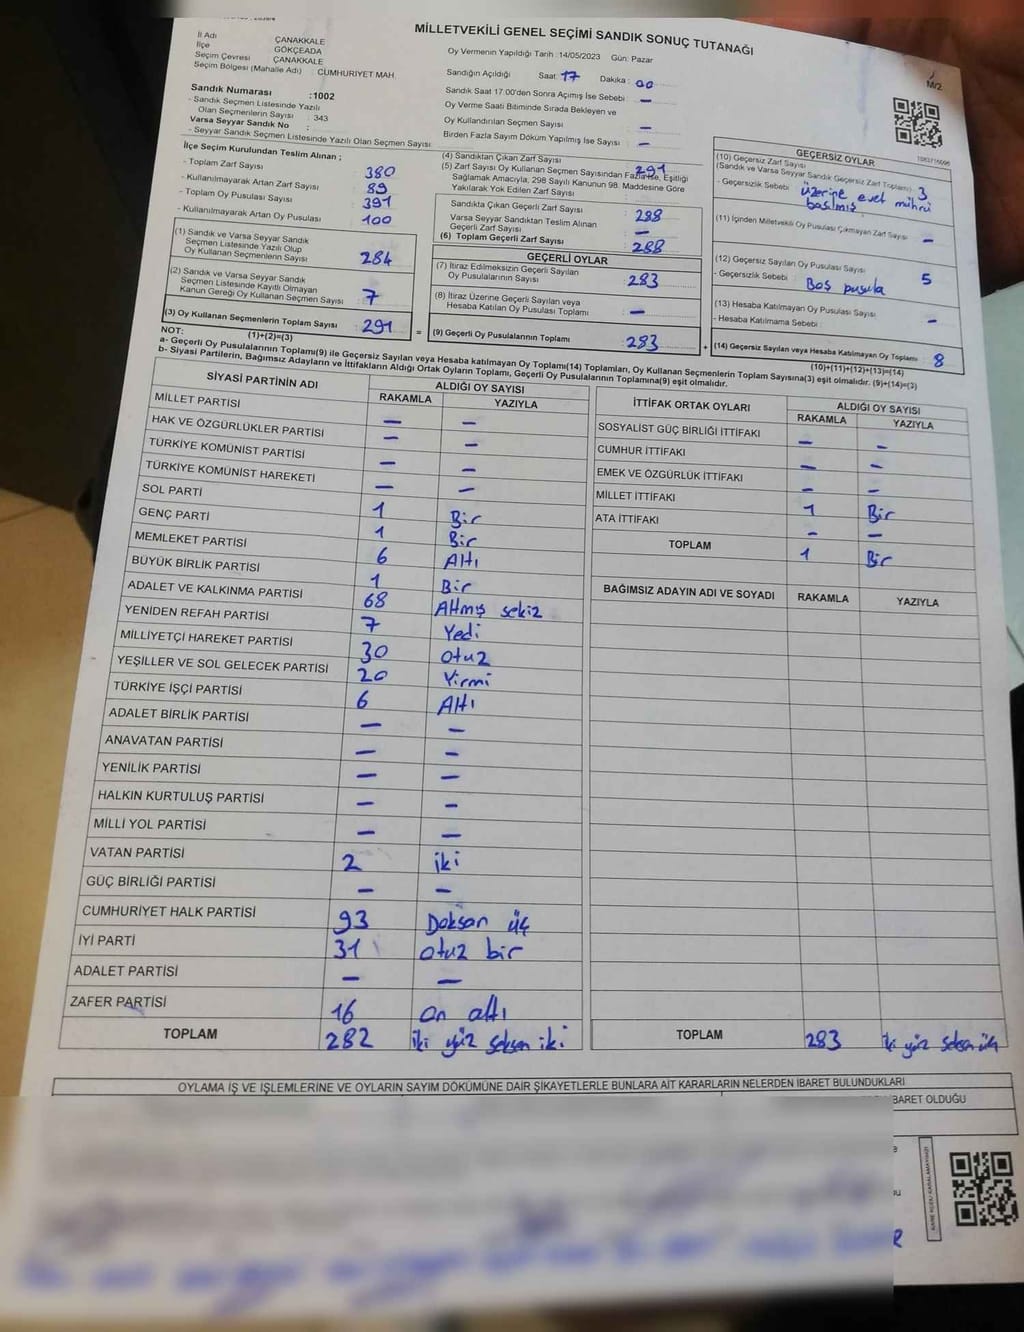 MİLLETVEKİLİ GENEL SEÇİMİ SANDIK SONUÇ TUTANAĞI
İl Adı ÇANAKKALE
İlçe GÖKÇEADA
Seçim Çevresi ÇANAKKALE
Seçim Bölgesi (Mahalle Adı) : CUMHURİYET MAH.
Sandık Numarası :1002
- Sandık Seçmen Listesinde Yazılı
Olan Seçmenlerin Sayısı : 343
Varsa Seyyar Sandık No :
- Seyyar Sandık Seçmen Listesinde Yazılı Olan Seçmen Sayısı
Oy Vermenin Yapıldığı Tarih :14/05/2023 Gün: Pazar
Sandığın Açıldığı Saat: 17 Dakika : 00
Sandık Saat 17.00'den Sonra Açımış İse Sebebi : —
Oy Verme Saati Bitiminde Sırada Bekleyen ve
Oy Kullandırılan Seçmen Sayısı : —
Birden Fazla Sayım Döküm Yapılmış İse Sayısı : —
M/2
İlçe Seçim Kurulundan Teslim Alınan ;
- Toplam Zarf Sayısı : 380
- Kullanılmayarak Artan Zarf Sayısı : 89
- Toplam Oy Pusulası Sayısı : 391
- Kullanılmayarak Artan Oy Pusulası : 100
(1) Sandık ve Varsa Seyyar Sandık
Seçmen Listesinde Yazılı Olup
Oy Kullanan Seçmenlerin Sayısı : 284
(2) Sandık ve Varsa Seyyar Sandık
Seçmen Listesinde Kayıtlı Olmayan
Kanun Gereği Oy Kullanan Seçmen Sayısı : 7
(3) Oy Kullanan Seçmenlerin Toplam Sayısı : 291
(1)+(2)=(3)
(4) Sandıktan Çıkan Zarf Sayısı : 291
(5) Zarf Sayısı Oy Kullanan Seçmen Sayısından Fazla ise, Eşitliği
Sağlamak Amacıyla, 298 Sayılı Kanunun 98. Maddesine Göre
Yakılarak Yok Edilen Zarf Sayısı :
Sandıkta Çıkan Geçerli Zarf Sayısı : 288
Varsa Seyyar Sandıktan Teslim Alınan
Geçerli Zarf Sayısı : —
(6) Toplam Geçerli Zarf Sayısı : 288
GEÇERLİ OYLAR
(7) İtiraz Edilmeksizin Geçerli Sayılan
Oy Pusulalarının Sayısı : 283
(8) İtiraz Üzerine Geçerli Sayılan veya
Hesaba Katılan Oy Pusulası Toplamı : —
= (9) Geçerli Oy Pusulalarının Toplamı : 283
GEÇERSİZ OYLAR
(10) Geçersiz Zarf Sayısı
(Sandık ve Varsa Seyyar Sandık Geçersiz Zarf Toplamı) : 3
- Geçersizlik Sebebi : üzerine evet mührü
basılmış
(11) İçinden Milletvekili Oy Pusulası Çıkmayan Zarf Sayısı : —
(12) Geçersiz Sayılan Oy Pusulası Sayısı : 5
- Geçersizlik Sebebi : Boş pusula
(13) Hesaba Katılmayan Oy Pusulası Sayısı : —
- Hesaba Katılmama Sebebi :
+ (14) Geçersiz Sayılan veya Hesaba Katılmayan Oy Toplamı : 8
(10)+(11)+(12)+(13)=(14)
NOT:
a- Geçerli Oy Pusulalarının Toplamı(9) ile Geçersiz Sayılan veya Hesaba katılmayan Oy Toplamı(14) Toplamları, Oy Kullanan Seçmenlerin Toplam Sayısına(3) eşit olmalıdır. (9)+(14)=(3)
b- Siyasi Partilerin, Bağımsız Adayların ve İttifakların Aldığı Ortak Oyların Toplamı, Geçerli Oy Pusulalarının Toplamına(9) eşit olmalıdır.
SİYASİ PARTİNİN ADI ALDIĞI OY SAYISI
RAKAMLA YAZIYLA
MİLLET PARTİSİ — —
HAK VE ÖZGÜRLÜKLER PARTİSİ — —
TÜRKİYE KOMÜNİST PARTİSİ — —
TÜRKİYE KOMÜNİST HAREKETİ — —
SOL PARTİ 1 Bir
GENÇ PARTİ 1 Bir
MEMLEKET PARTİSİ 6 Altı
BÜYÜK BİRLİK PARTİSİ 1 Bir
ADALET VE KALKINMA PARTİSİ 68 Altmış sekiz
YENİDEN REFAH PARTİSİ 7 Yedi
MİLLİYETÇİ HAREKET PARTİSİ 30 otuz
YEŞİLLER VE SOL GELECEK PARTİSİ 20 Yirmi
TÜRKİYE İŞÇİ PARTİSİ 6 Altı
ADALET BİRLİK PARTİSİ — —
ANAVATAN PARTİSİ — —
YENİLİK PARTİSİ — —
HALKIN KURTULUŞ PARTİSİ — —
MİLLİ YOL PARTİSİ — —
VATAN PARTİSİ 2 iki
GÜÇ BİRLİĞİ PARTİSİ — —
CUMHURİYET HALK PARTİSİ 93 Doksan üç
İYİ PARTİ 31 otuz bir
ADALET PARTİSİ — —
ZAFER PARTİSİ 16 on altı
TOPLAM 282 iki yüz seksen iki
İTTİFAK ORTAK OYLARI ALDIĞI OY SAYISI
RAKAMLA YAZIYLA
SOSYALİST GÜÇ BİRLİĞİ İTTİFAKI — —
CUMHUR İTTİFAKI — —
EMEK VE ÖZGÜRLÜK İTTİFAKI — —
MİLLET İTTİFAKI 1 Bir
ATA İTTİFAKI — —
TOPLAM 1 Bir
BAĞIMSIZ ADAYIN ADI VE SOYADI RAKAMLA YAZIYLA
TOPLAM 283 iki yüz seksen üç
OYLAMA İŞ VE İŞLEMLERİNE VE OYLARIN SAYIM DÖKÜMÜNE DAİR ŞİKAYETLERLE BUNLARA AİT KARARLARIN NELERDEN İBARET BULUNDUKLARI
BARET OLDUĞU